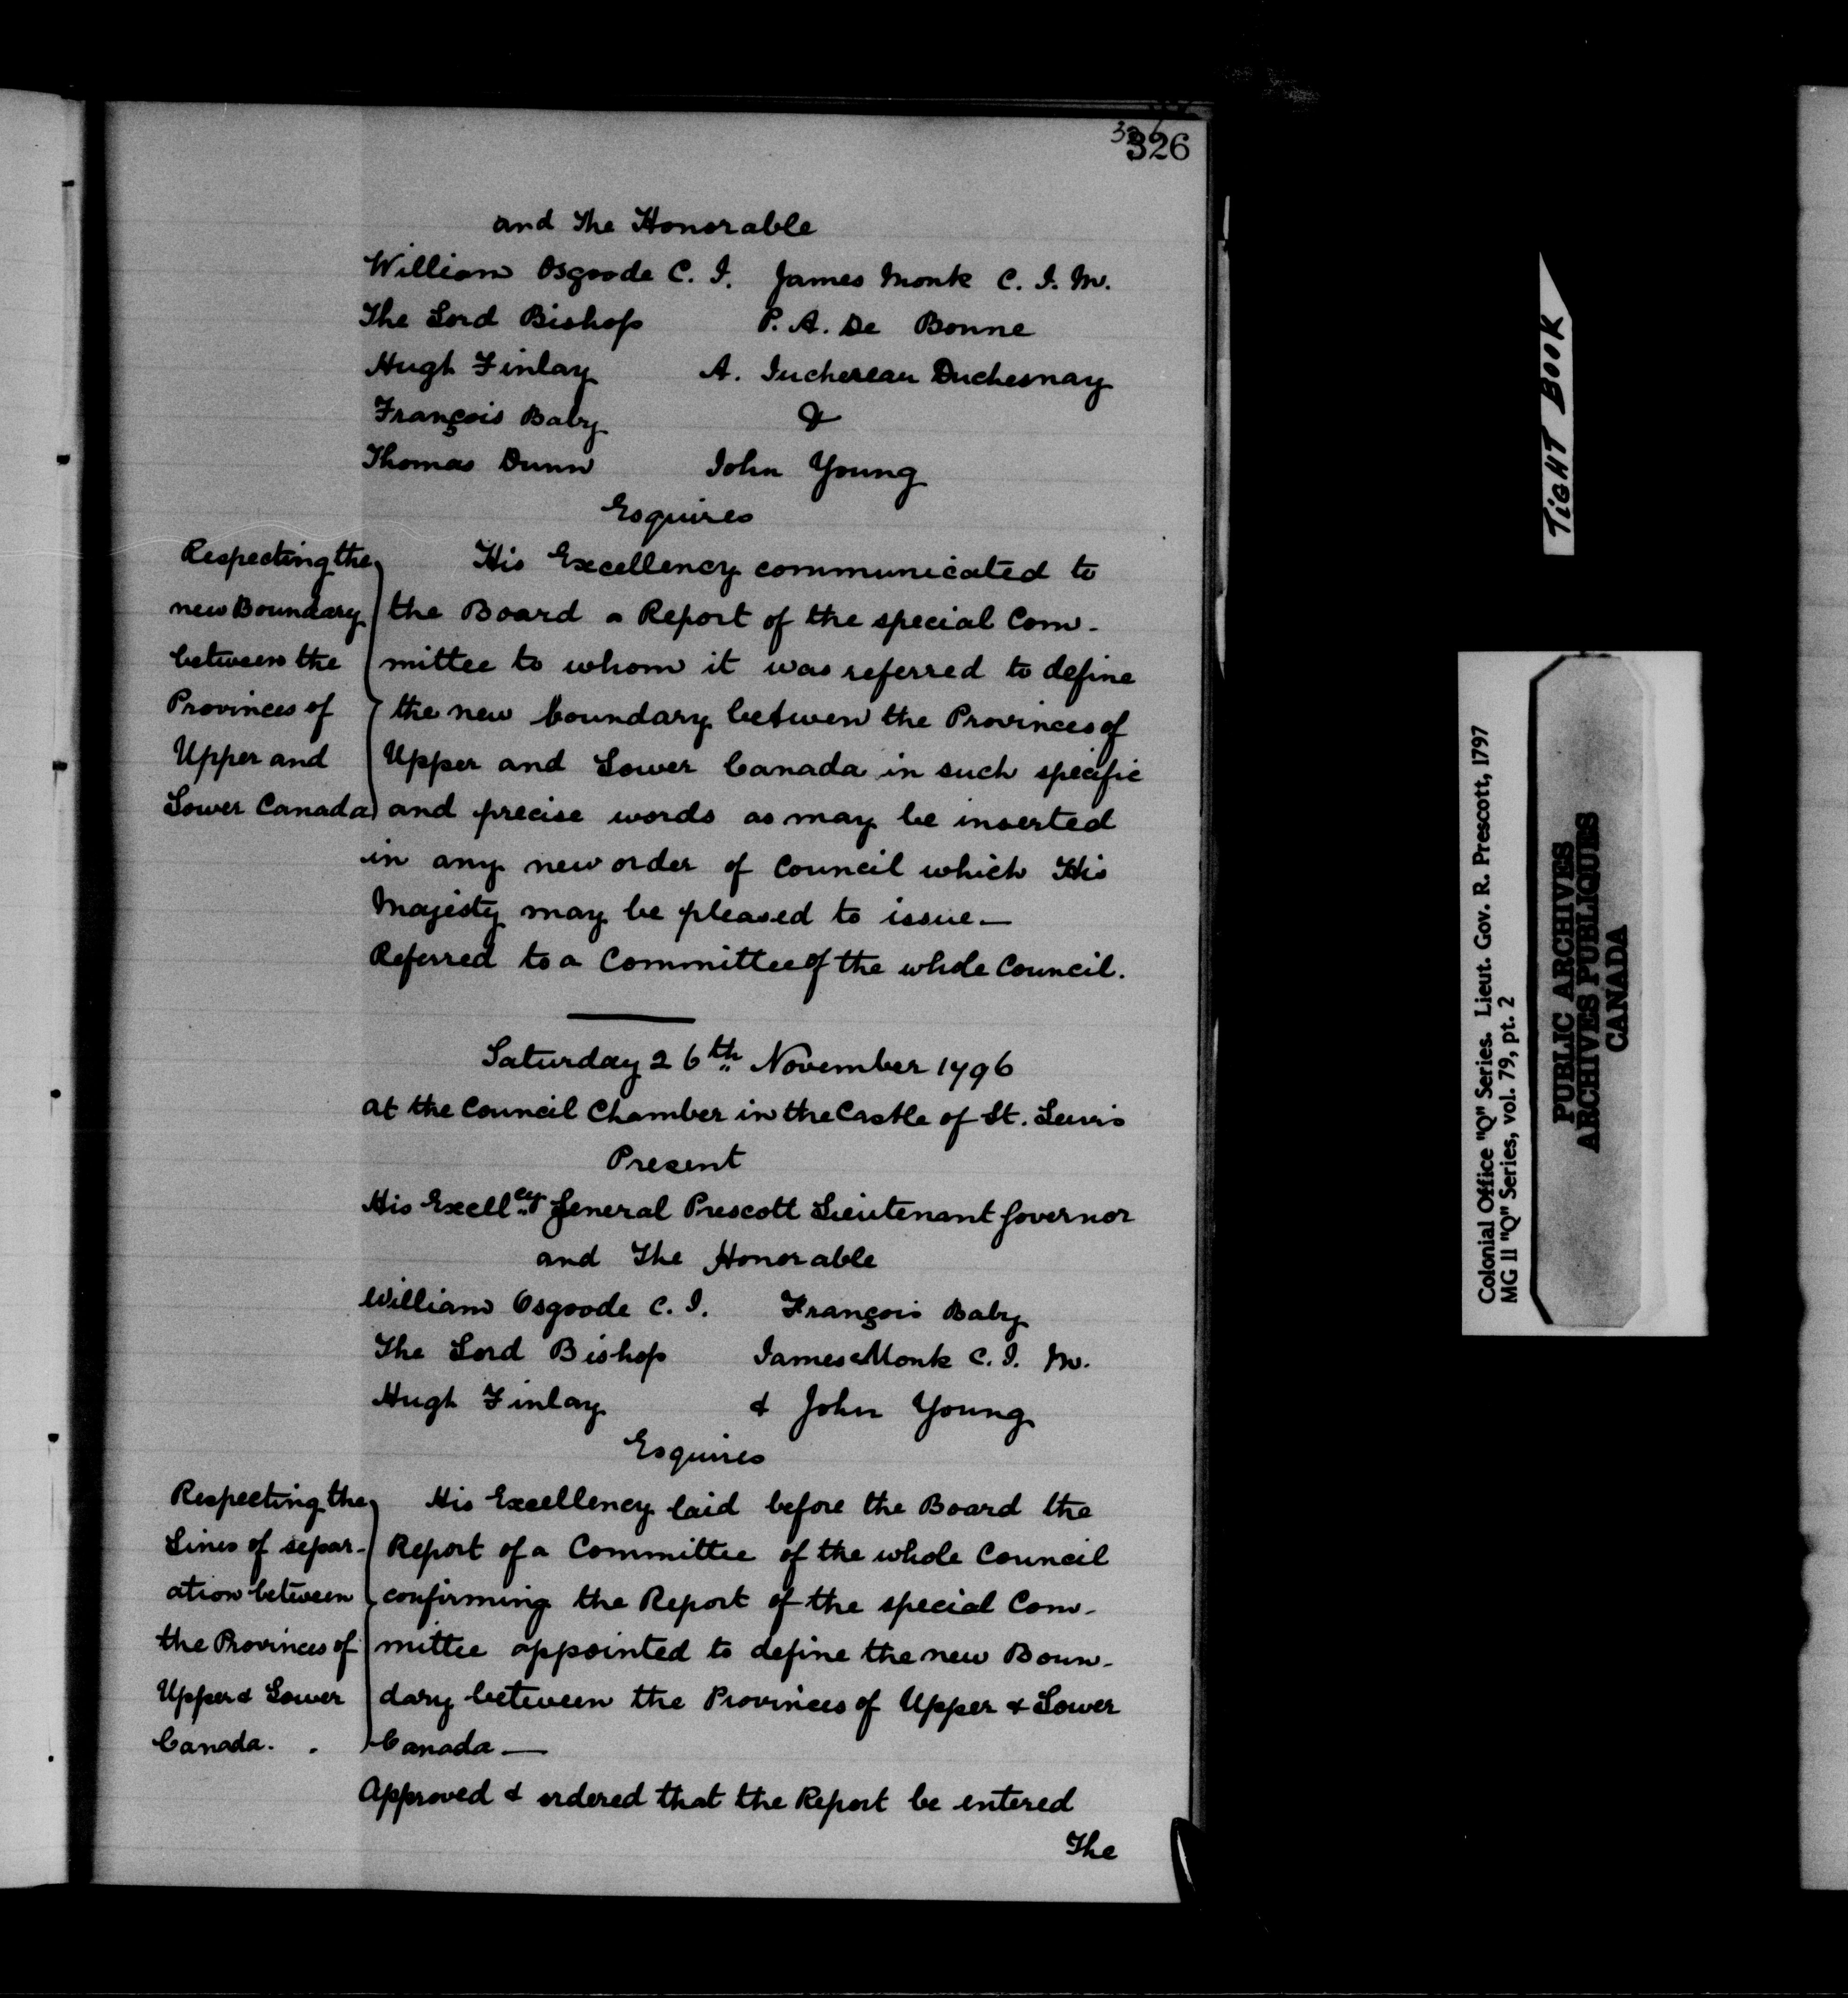 326
and The Honorable
William Osgoode C. J. James Monk C. J. M.
The Lord Bishop P. A. De Bonne
Hugh Finlay A. Juchereau Duchesnay
François Baby &
Thomas Dunn John Young
Esquires
Respecting the
new Boundary
between the
Provinces of
Upper and
Lower Canada
His Excellency communicated to
the Board a Report of the special Com-
mittee to whom it was referred to define
the new boundary between the Provinces of
Upper and Lower Canada in such specific
and precise words as may be inserted
in any new order of Council which His
Majesty may be pleased to issue.—
Referred to a Committee of the whole Council.
Saturday 26th November 1796
at the Council Chamber in the Castle of St. Lewis
Present
His Excellcy General Prescott Lieutenant Governor
and The Honorable
William Osgoode C. J. François Baby
The Lord Bishop James Monk C. J. M.
Hugh Finlay & John Young
Esquires
Respecting the
Lines of separ-
ation between
the Provinces of
Upper & Lower
Canada. .
His Excellency laid before the Board the
Report of a Committee of the whole Council
confirming the Report of the special Com-
mittee appointed to define the new Boun-
dary between the Provinces of Upper & Lower
Canada.—
Approved & ordered that the Report be entered
The
TIGHT BOOK
Colonial Office "Q" Series. Lieut. Gov. R. Prescott, 1797
MG 11 "Q" Series, vol. 79, pt. 2
PUBLIC ARCHIVES
ARCHIVES PUBLIQUES
CANADA